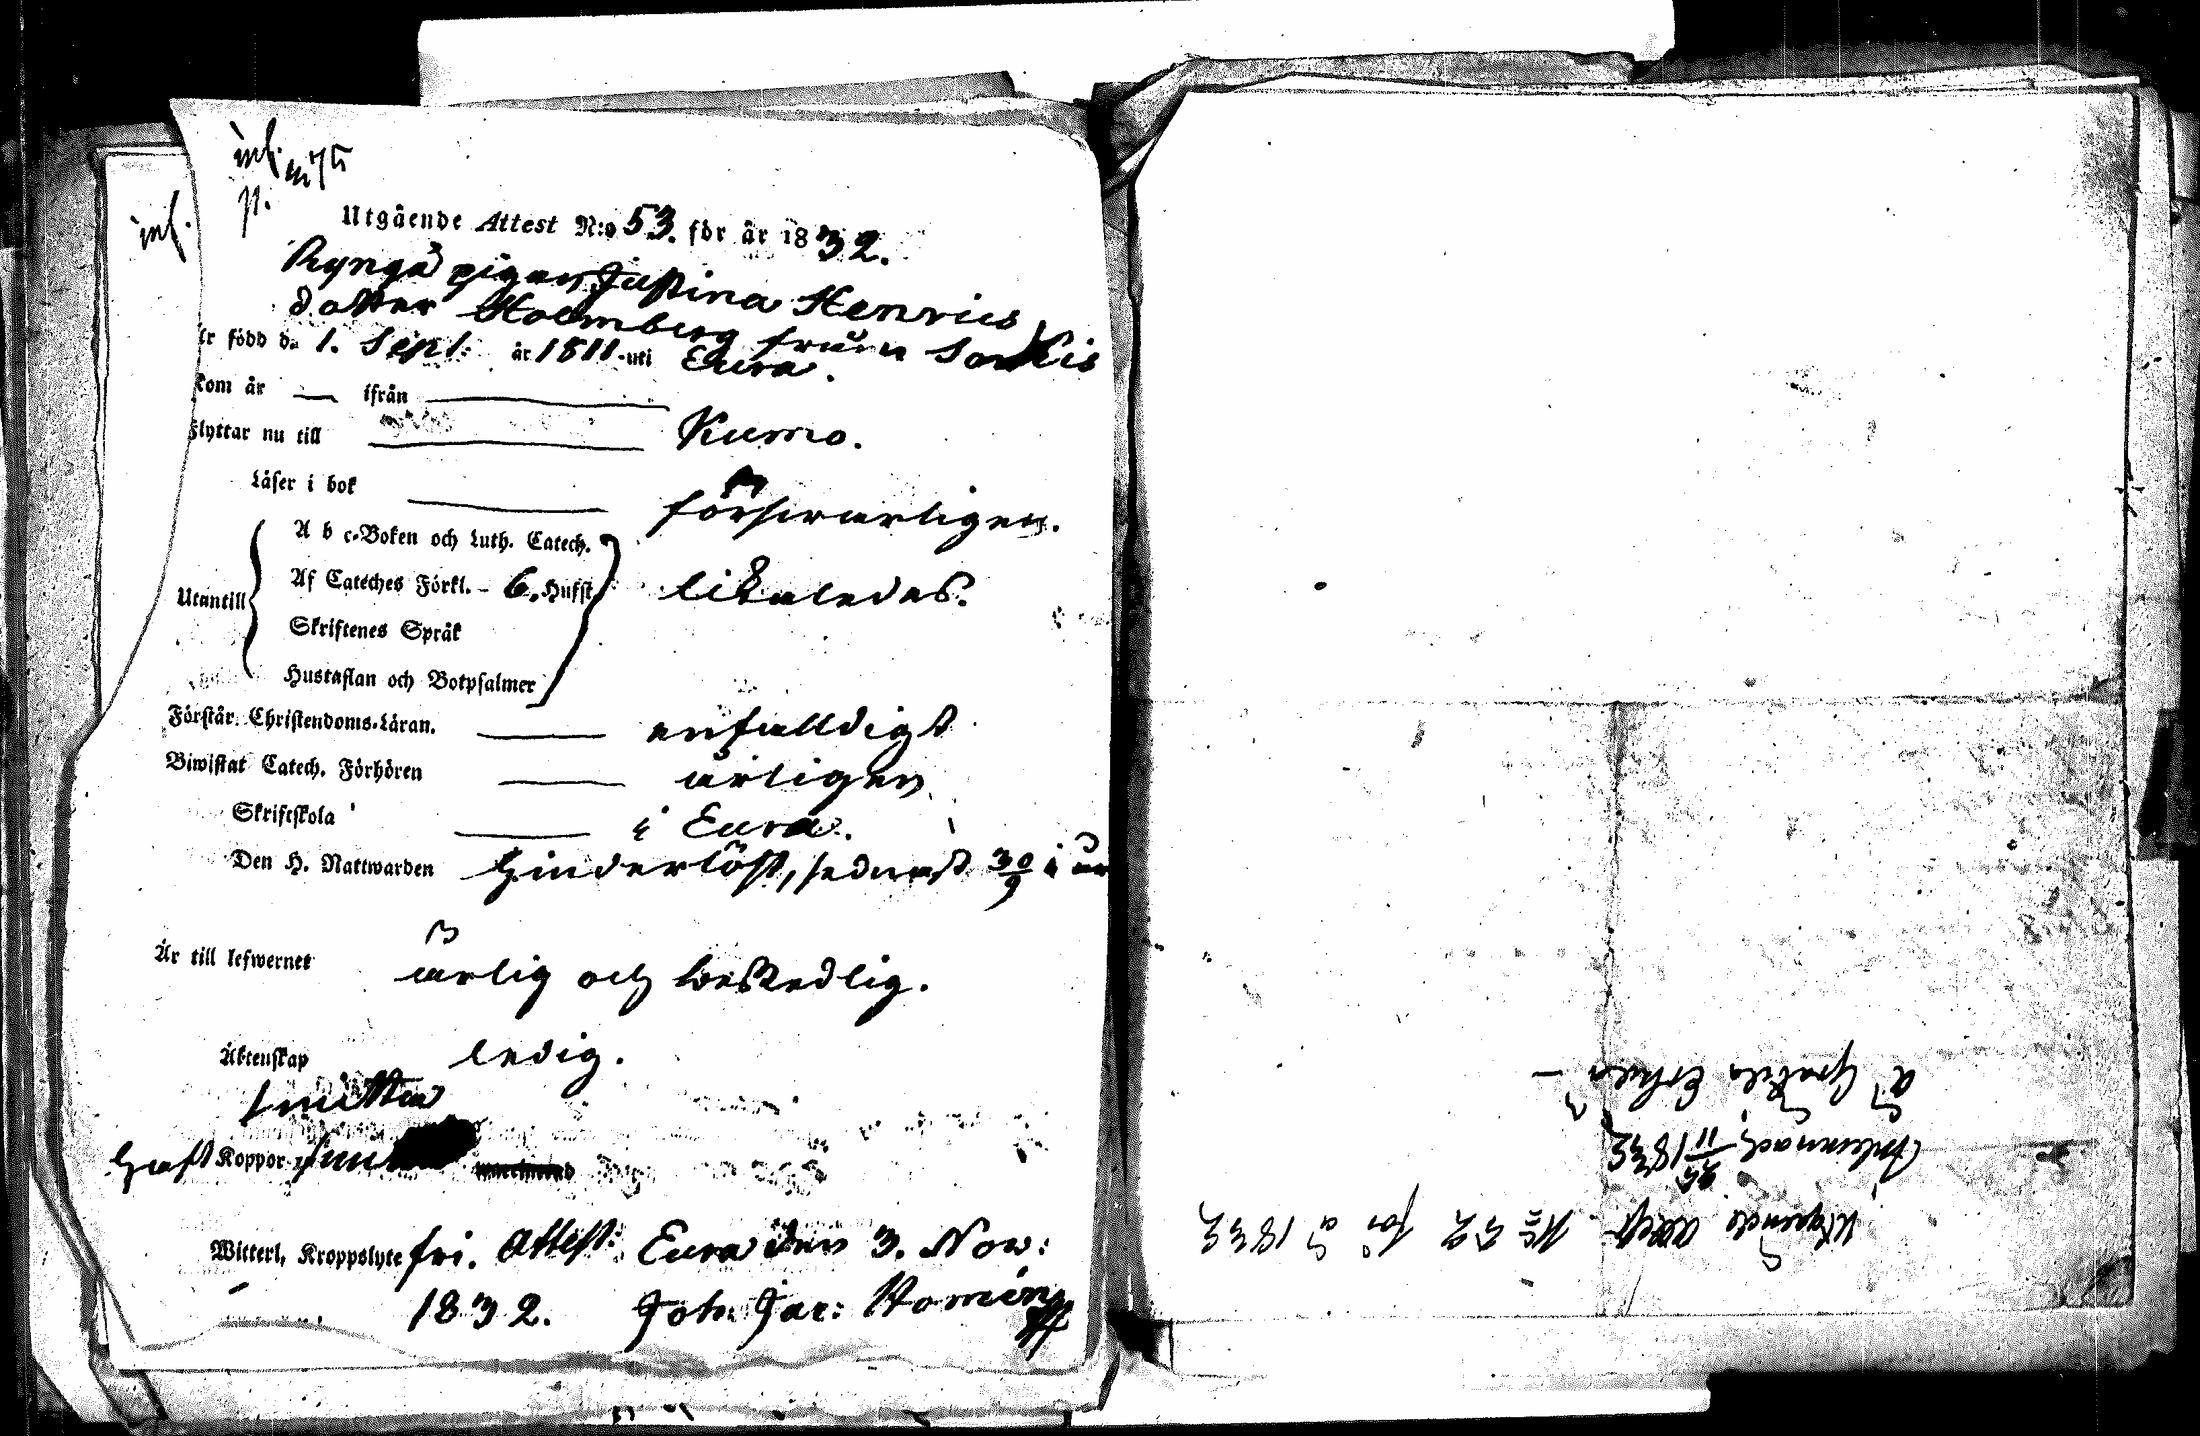 inf.
inf.
p.
Utgående Attest N:o 53. för år 1832.
pigan Justina Henrics
dotter Holmberg från Sorkis
Är född d. 1. Sept. år 1811 uti Eura.
Kom år — ifrån —
Flyttar nu till — Kumo.
Läser i bok — försvarligen.
Utantill
A b c-Boken och Luth. Catech.
Af Cateches Förkl. - 6. Hufst. likaledes.
Skriftenes Språk
Hustaflan och Botpsalmer
Förstår Christendoms-Läran. — enfalldigt
Biwistat Catech. Förhören — årligen
Skriftskola — i Eura.
Den H. Nattwarden hinderlöst, sednast 30/9 i år
Är till lefwernet ärlig och beskedlig.
Äktenskap ledig.
smitta
haft Koppor
Witterl. Kroppslyte fri. Attest: Eura den 3. Nov:
1832. Joh: Jac:
Utgående Attest N:o 52 för å 1832